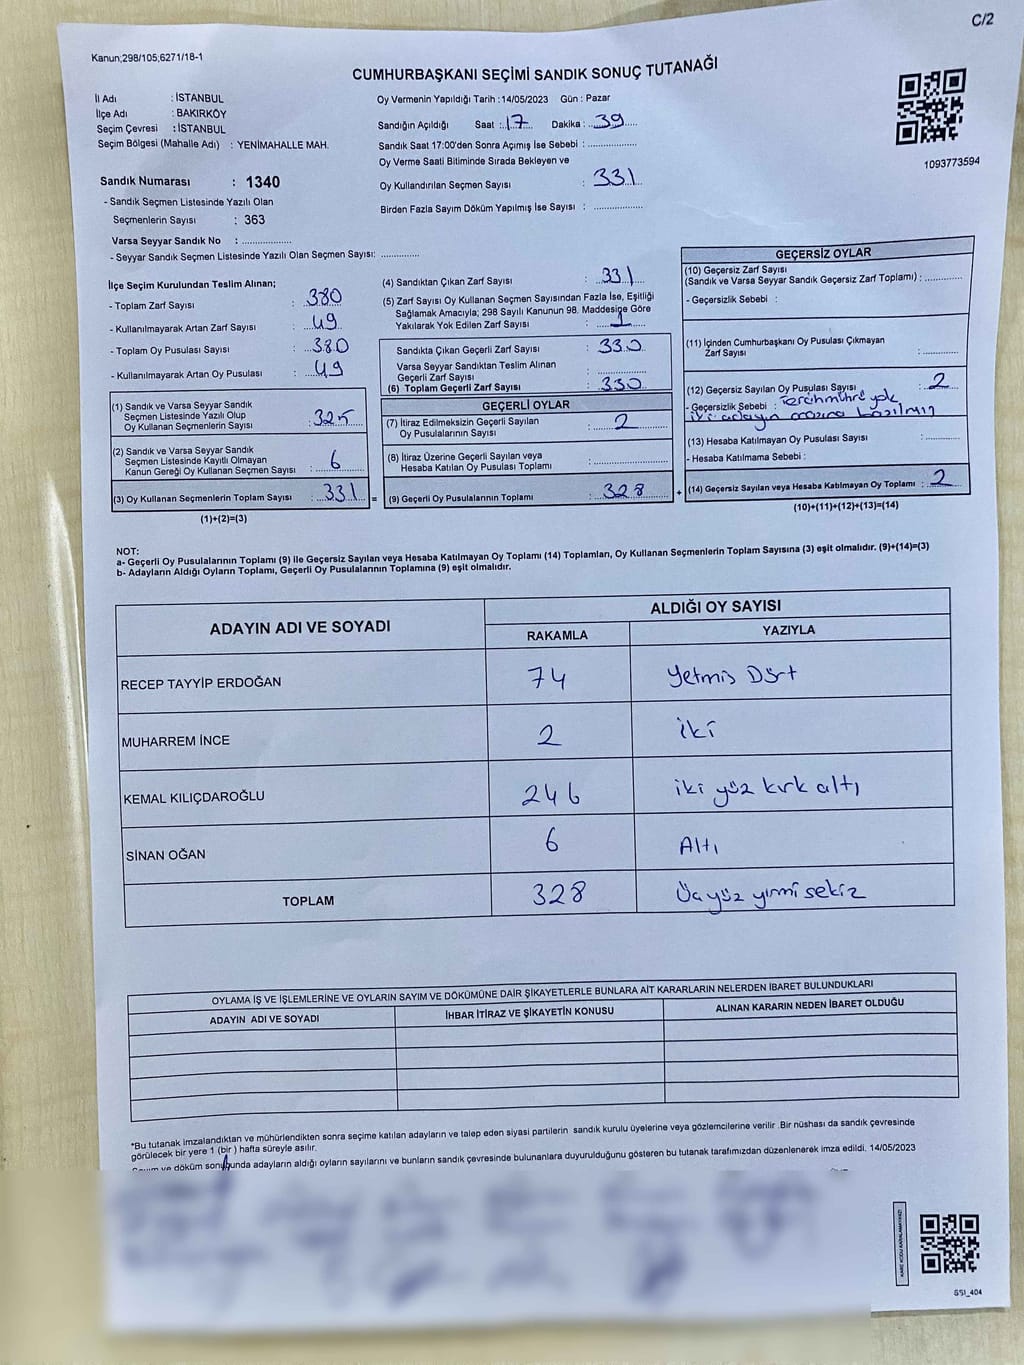 C/2
Kanun;298/105;6271/18-1
CUMHURBAŞKANI SEÇİMİ SANDIK SONUÇ TUTANAĞI
İl Adı : İSTANBUL
İlçe Adı : BAKIRKÖY
Seçim Çevresi : İSTANBUL
Seçim Bölgesi (Mahalle Adı) : YENİMAHALLE MAH.
Sandık Numarası : 1340
- Sandık Seçmen Listesinde Yazılı Olan
Seçmenlerin Sayısı : 363
Varsa Seyyar Sandık No : ..................
- Seyyar Sandık Seçmen Listesinde Yazılı Olan Seçmen Sayısı: ..............
Oy Vermenin Yapıldığı Tarih : 14/05/2023 Gün : Pazar
Sandığın Açıldığı Saat : 17 Dakika : 39
Sandık Saat 17:00'den Sonra Açımış İse Sebebi : ..................
Oy Verme Saati Bitiminde Sırada Bekleyen ve
Oy Kullandırılan Seçmen Sayısı : 331
Birden Fazla Sayım Döküm Yapılmış İse Sayısı : ..................
1093773594
İlçe Seçim Kurulundan Teslim Alınan;
- Toplam Zarf Sayısı : 380
- Kullanılmayarak Artan Zarf Sayısı : 49
- Toplam Oy Pusulası Sayısı : 380
- Kullanılmayarak Artan Oy Pusulası : 49
(1) Sandık ve Varsa Seyyar Sandık
Seçmen Listesinde Yazılı Olup
Oy Kullanan Seçmenlerin Sayısı : 325
(2) Sandık ve Varsa Seyyar Sandık
Seçmen Listesinde Kayıtlı Olmayan
Kanun Gereği Oy Kullanan Seçmen Sayısı : 6
(3) Oy Kullanan Seçmenlerin Toplam Sayısı : 331 =
(1)+(2)=(3)
(4) Sandıktan Çıkan Zarf Sayısı : 331
(5) Zarf Sayısı Oy Kullanan Seçmen Sayısından Fazla İse, Eşitliği
Sağlamak Amacıyla; 298 Sayılı Kanunun 98. Maddesine Göre
Yakılarak Yok Edilen Zarf Sayısı : 1
Sandıkta Çıkan Geçerli Zarf Sayısı : 330
Varsa Seyyar Sandıktan Teslim Alınan
Geçerli Zarf Sayısı : ..................
(6) Toplam Geçerli Zarf Sayısı : 330
GEÇERLİ OYLAR
(7) İtiraz Edilmeksizin Geçerli Sayılan
Oy Pusulalarının Sayısı : 2
(8) İtiraz Üzerine Geçerli Sayılan veya
Hesaba Katılan Oy Pusulası Toplamı : ..................
(9) Geçerli Oy Pusulalarının Toplamı : 328 +
GEÇERSİZ OYLAR
(10) Geçersiz Zarf Sayısı
(Sandık ve Varsa Seyyar Sandık Geçersiz Zarf Toplamı) : ............
- Geçersizlik Sebebi :
(11) İçinden Cumhurbaşkanı Oy Pusulası Çıkmayan
Zarf Sayısı : ............
(12) Geçersiz Sayılan Oy Pusulası Sayısı : 2
- Geçersizlik Sebebi : Tercih mührü yok
iki adayın arasına basılmış
(13) Hesaba Katılmayan Oy Pusulası Sayısı : ............
- Hesaba Katılmama Sebebi :
(14) Geçersiz Sayılan veya Hesaba Katılmayan Oy Toplamı : 2
(10)+(11)+(12)+(13)=(14)
NOT:
a- Geçerli Oy Pusulalarının Toplamı (9) ile Geçersiz Sayılan veya Hesaba Katılmayan Oy Toplamı (14) Toplamları, Oy Kullanan Seçmenlerin Toplam Sayısına (3) eşit olmalıdır. (9)+(14)=(3)
b- Adayların Aldığı Oyların Toplamı, Geçerli Oy Pusulalarının Toplamına (9) eşit olmalıdır.
ADAYIN ADI VE SOYADI
ALDIĞI OY SAYISI
RAKAMLA YAZIYLA
RECEP TAYYİP ERDOĞAN 74 Yetmiş Dört
MUHARREM İNCE 2 iki
KEMAL KILIÇDAROĞLU 246 iki yüz kırk altı
SİNAN OĞAN 6 Altı
TOPLAM 328 Üçyüz yirmi sekiz
OYLAMA İŞ VE İŞLEMLERİNE VE OYLARIN SAYIM VE DÖKÜMÜNE DAİR ŞİKAYETLERLE BUNLARA AİT KARARLARIN NELERDEN İBARET BULUNDUKLARI
ADAYIN ADI VE SOYADI İHBAR İTİRAZ VE ŞİKAYETİN KONUSU ALINAN KARARIN NEDEN İBARET OLDUĞU
*Bu tutanak imzalandıktan ve mühürlendikten sonra seçime katılan adayların ve talep eden siyasi partilerin sandık kurulu üyelerine veya gözlemcilerine verilir .Bir nüshası da sandık çevresinde
görülecek bir yere 1 (bir ) hafta süreyle asılır.
Sayım ve döküm sonucunda adayların aldığı oyların sayılarını ve bunların sandık çevresinde bulunanlara duyurulduğunu gösteren bu tutanak tarafımızdan düzenlenerek imza edildi. 14/05/2023
KARE KODU KARALAMAYINIZ!
SSI_404